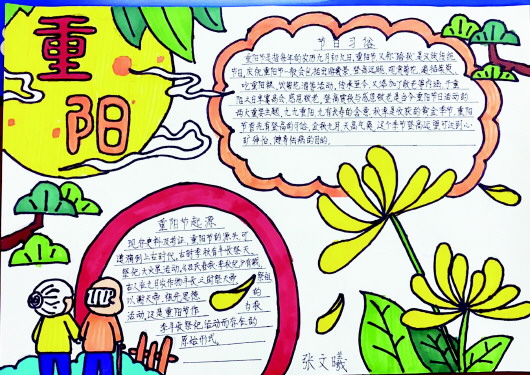 重
阳
节日习俗
重阳节是指每年的农历九月初九日,重阳节又称“踏秋”是汉族传统
节日,庆祝重阳节一般会包括出游赏景、登高远眺、观赏菊花、遍插茱萸、
吃重阳糕、饮菊花酒等活动,传承至今,又添加了敬老等内涵,于重
阳之日享宴高会,感恩敬老,登高赏秋与感恩敬老是当今重阳节日活动的
两大重要主题,九九重阳,九有长寿的含意,秋季是收获的黄金季节,重阳
节首先有登高的习俗,金秋九月天高气爽,这个季节登高远望可达到心
旷神怡、健身祛病的目的。
重阳节起源
现存史料及考证,重阳节的源头,可
追溯到上古时代,古时季秋有丰收祭天、
祭祖、大火星活动,
古人在九月收作物丰收之时祭天帝、祭祖
以谢天帝、祖先恩德
的
活动,这是重阳节作
为秋
季丰收祭祀活动而存在的
原始形式。
张文曦